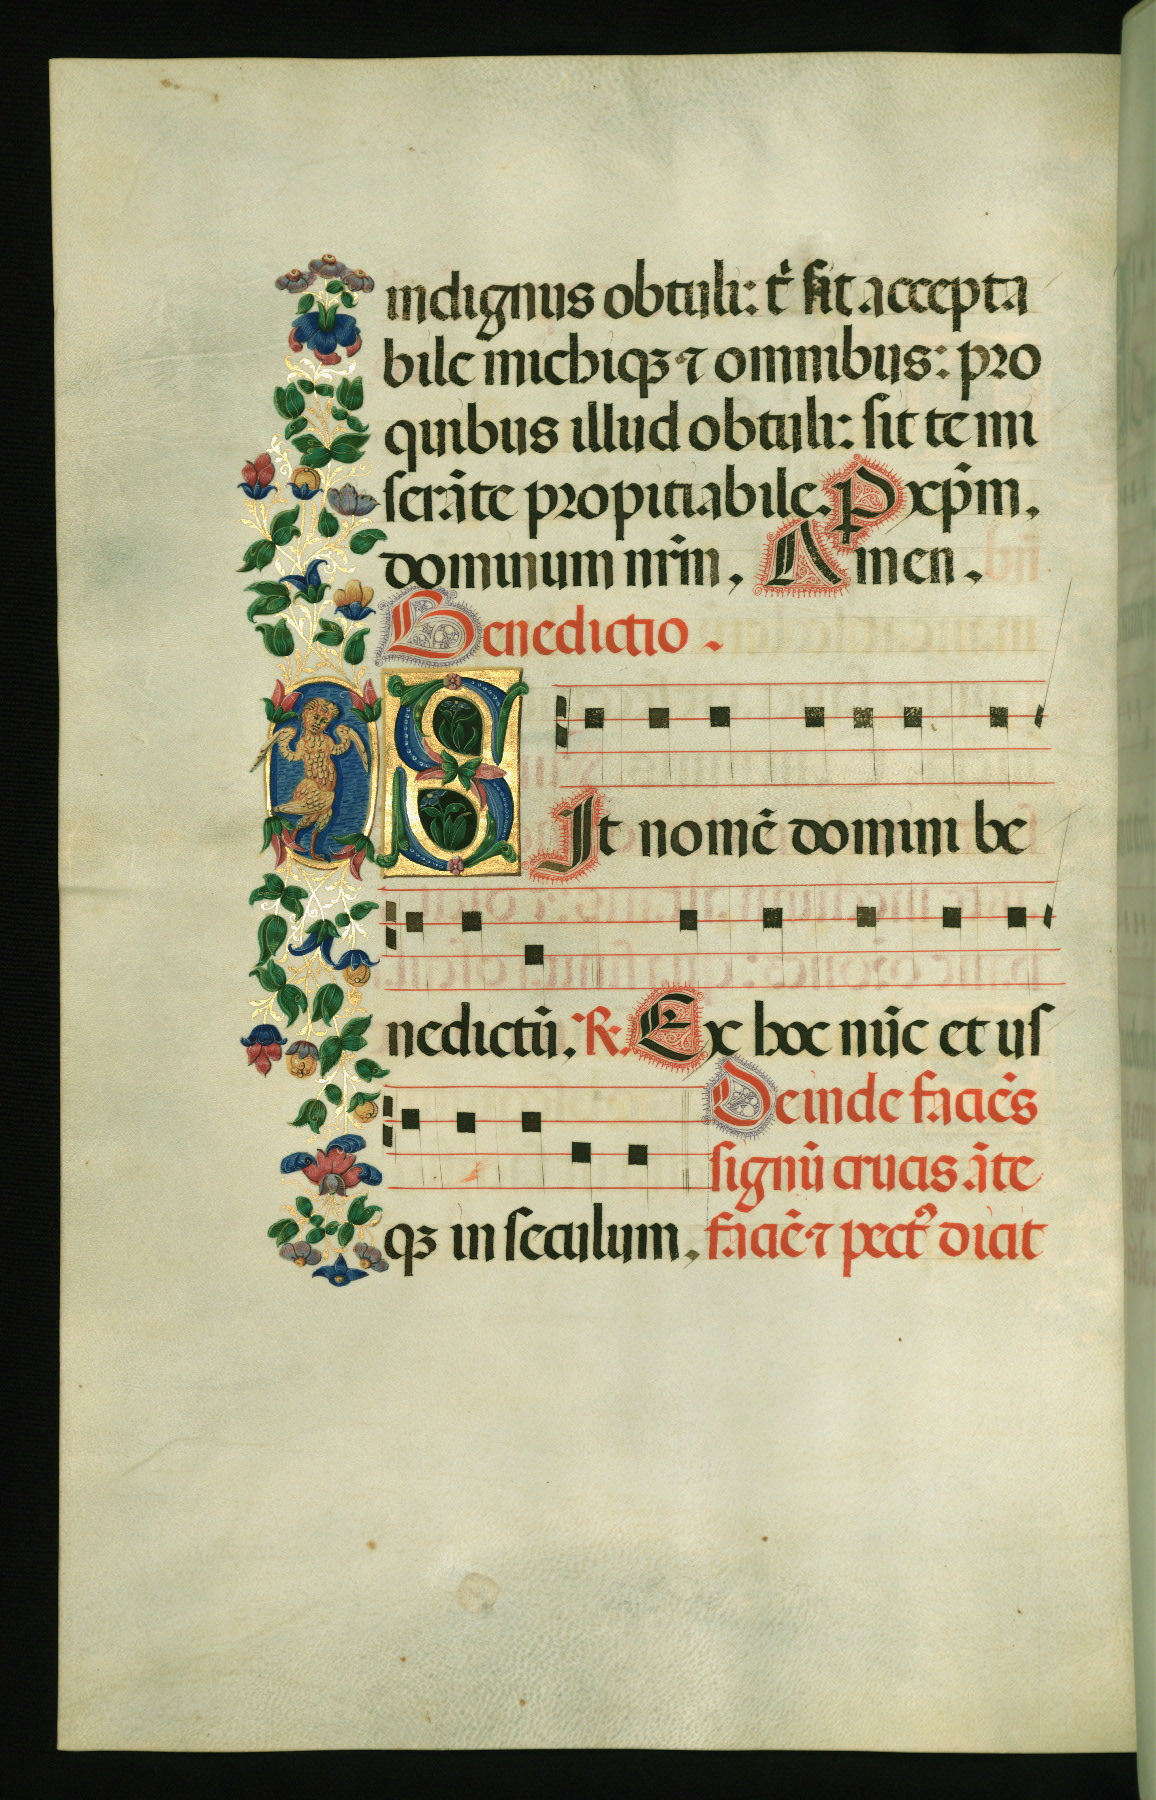 indignus obtuli: t̉ sit accepta
bile michiqꝫ ⁊ omnibus: pro
quibus illud obtuli: sit te mi
serāte propitiabile. Pxp̄m.
dominum nr̄m. Amen.
Benedictio.
SIt nomē domini be
nedictū. ℟. Ex hoc nūc et us
Deinde faciēs
signū crucis āte
qꝫ in seculum. faciē ⁊ pect᷒ dicat